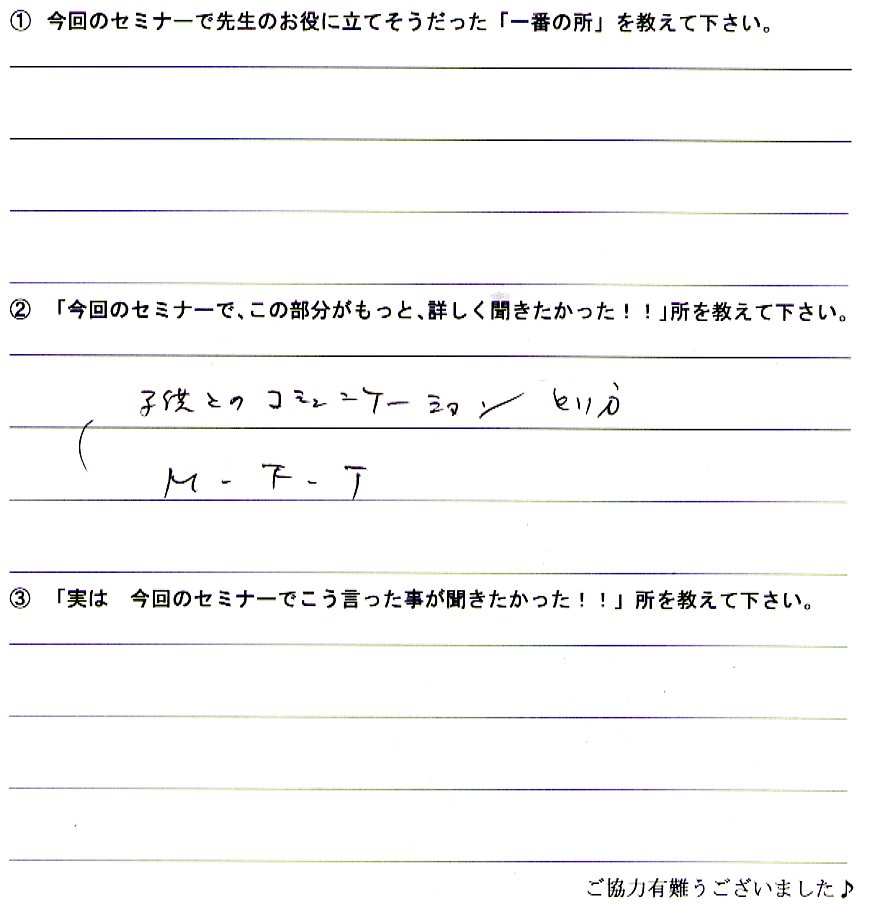 ① 今回のセミナーで先生のお役に立てそうだった「一番の所」を教えて下さい。
② 「今回のセミナーで、この部分がもっと、詳しく聞きたかった！！」所を教えて下さい。
子供とのコミュニケーション
M-F-T
③ 「実は　今回のセミナーでこう言った事が聞きたかった！！」所を教えて下さい。
ご協力有難うございました♪